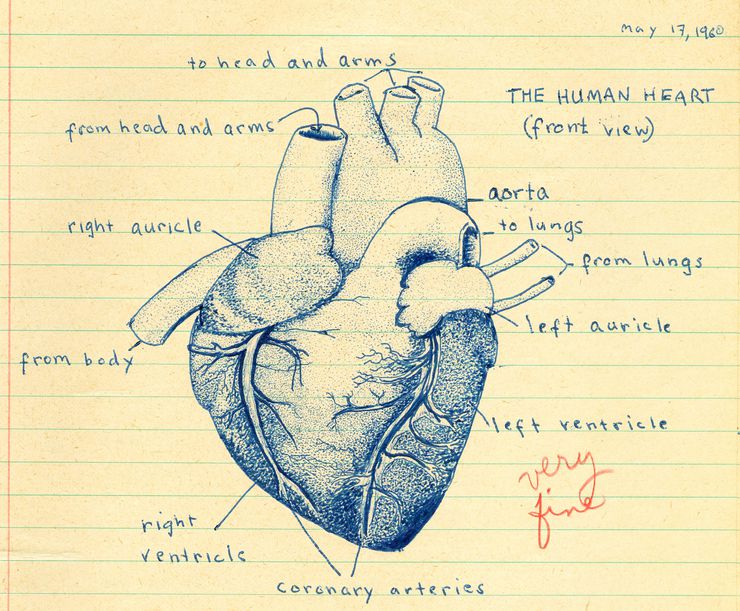 May 17, 1960
to head and arms
THE HUMAN HEART
(front view)
from head and arms
aorta
right auricle
to lungs
from lungs
left auricle
from body
left ventricle
very
fine
right
ventricle
coronary arteries